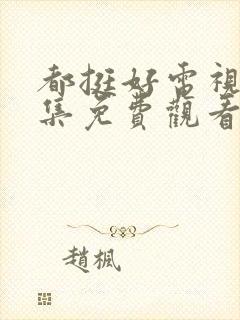 都挺好電視
集免費觀看
趙楓